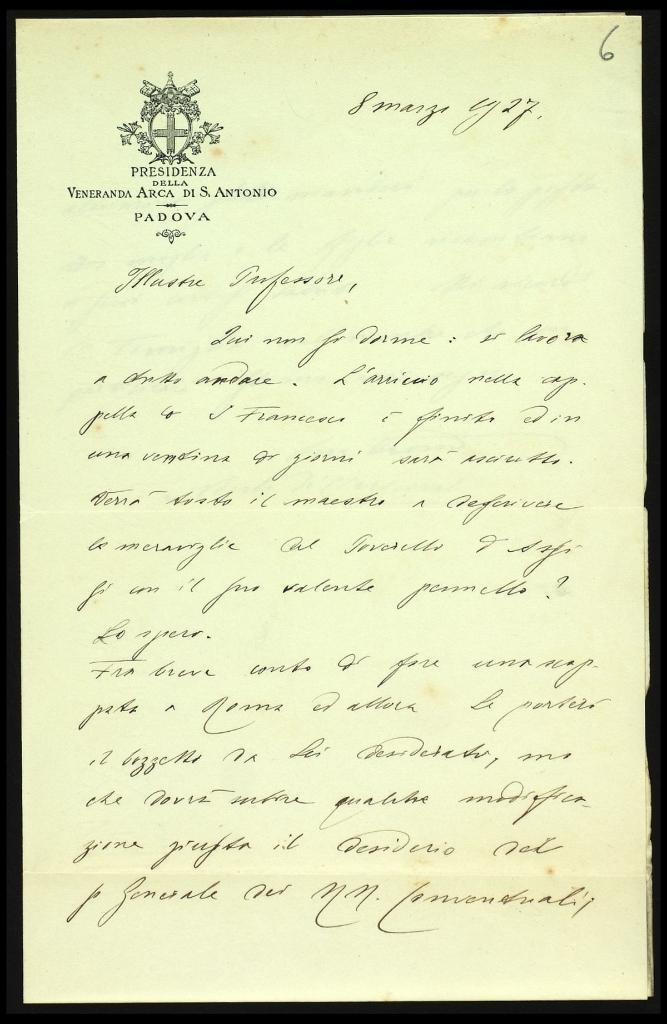 6
8 marzo 1927.
PRESIDENZA
DELLA
VENERANDA ARCA DI S. ANTONIO
PADOVA
Illustre Professore,
Qui non si dorme: si lavora
a tutto andare. L'arriccio nella cap-
pella di S Francesco è finito ed in
una ventina di giorni sarà asciutto.
Verrà tosto il maestro a descrivere
le meraviglie del Poverello d'Assi
si con il suo valente pennello?
Lo spero.
Fra breve conto di fare una scap-
pata a Roma ed allora Le porterò
il bozzetto da Lei desiderato, ma
che dovrà subire qualche modifica-
zione giusta il desiderio del
P Generale dei MM. Conventuali;